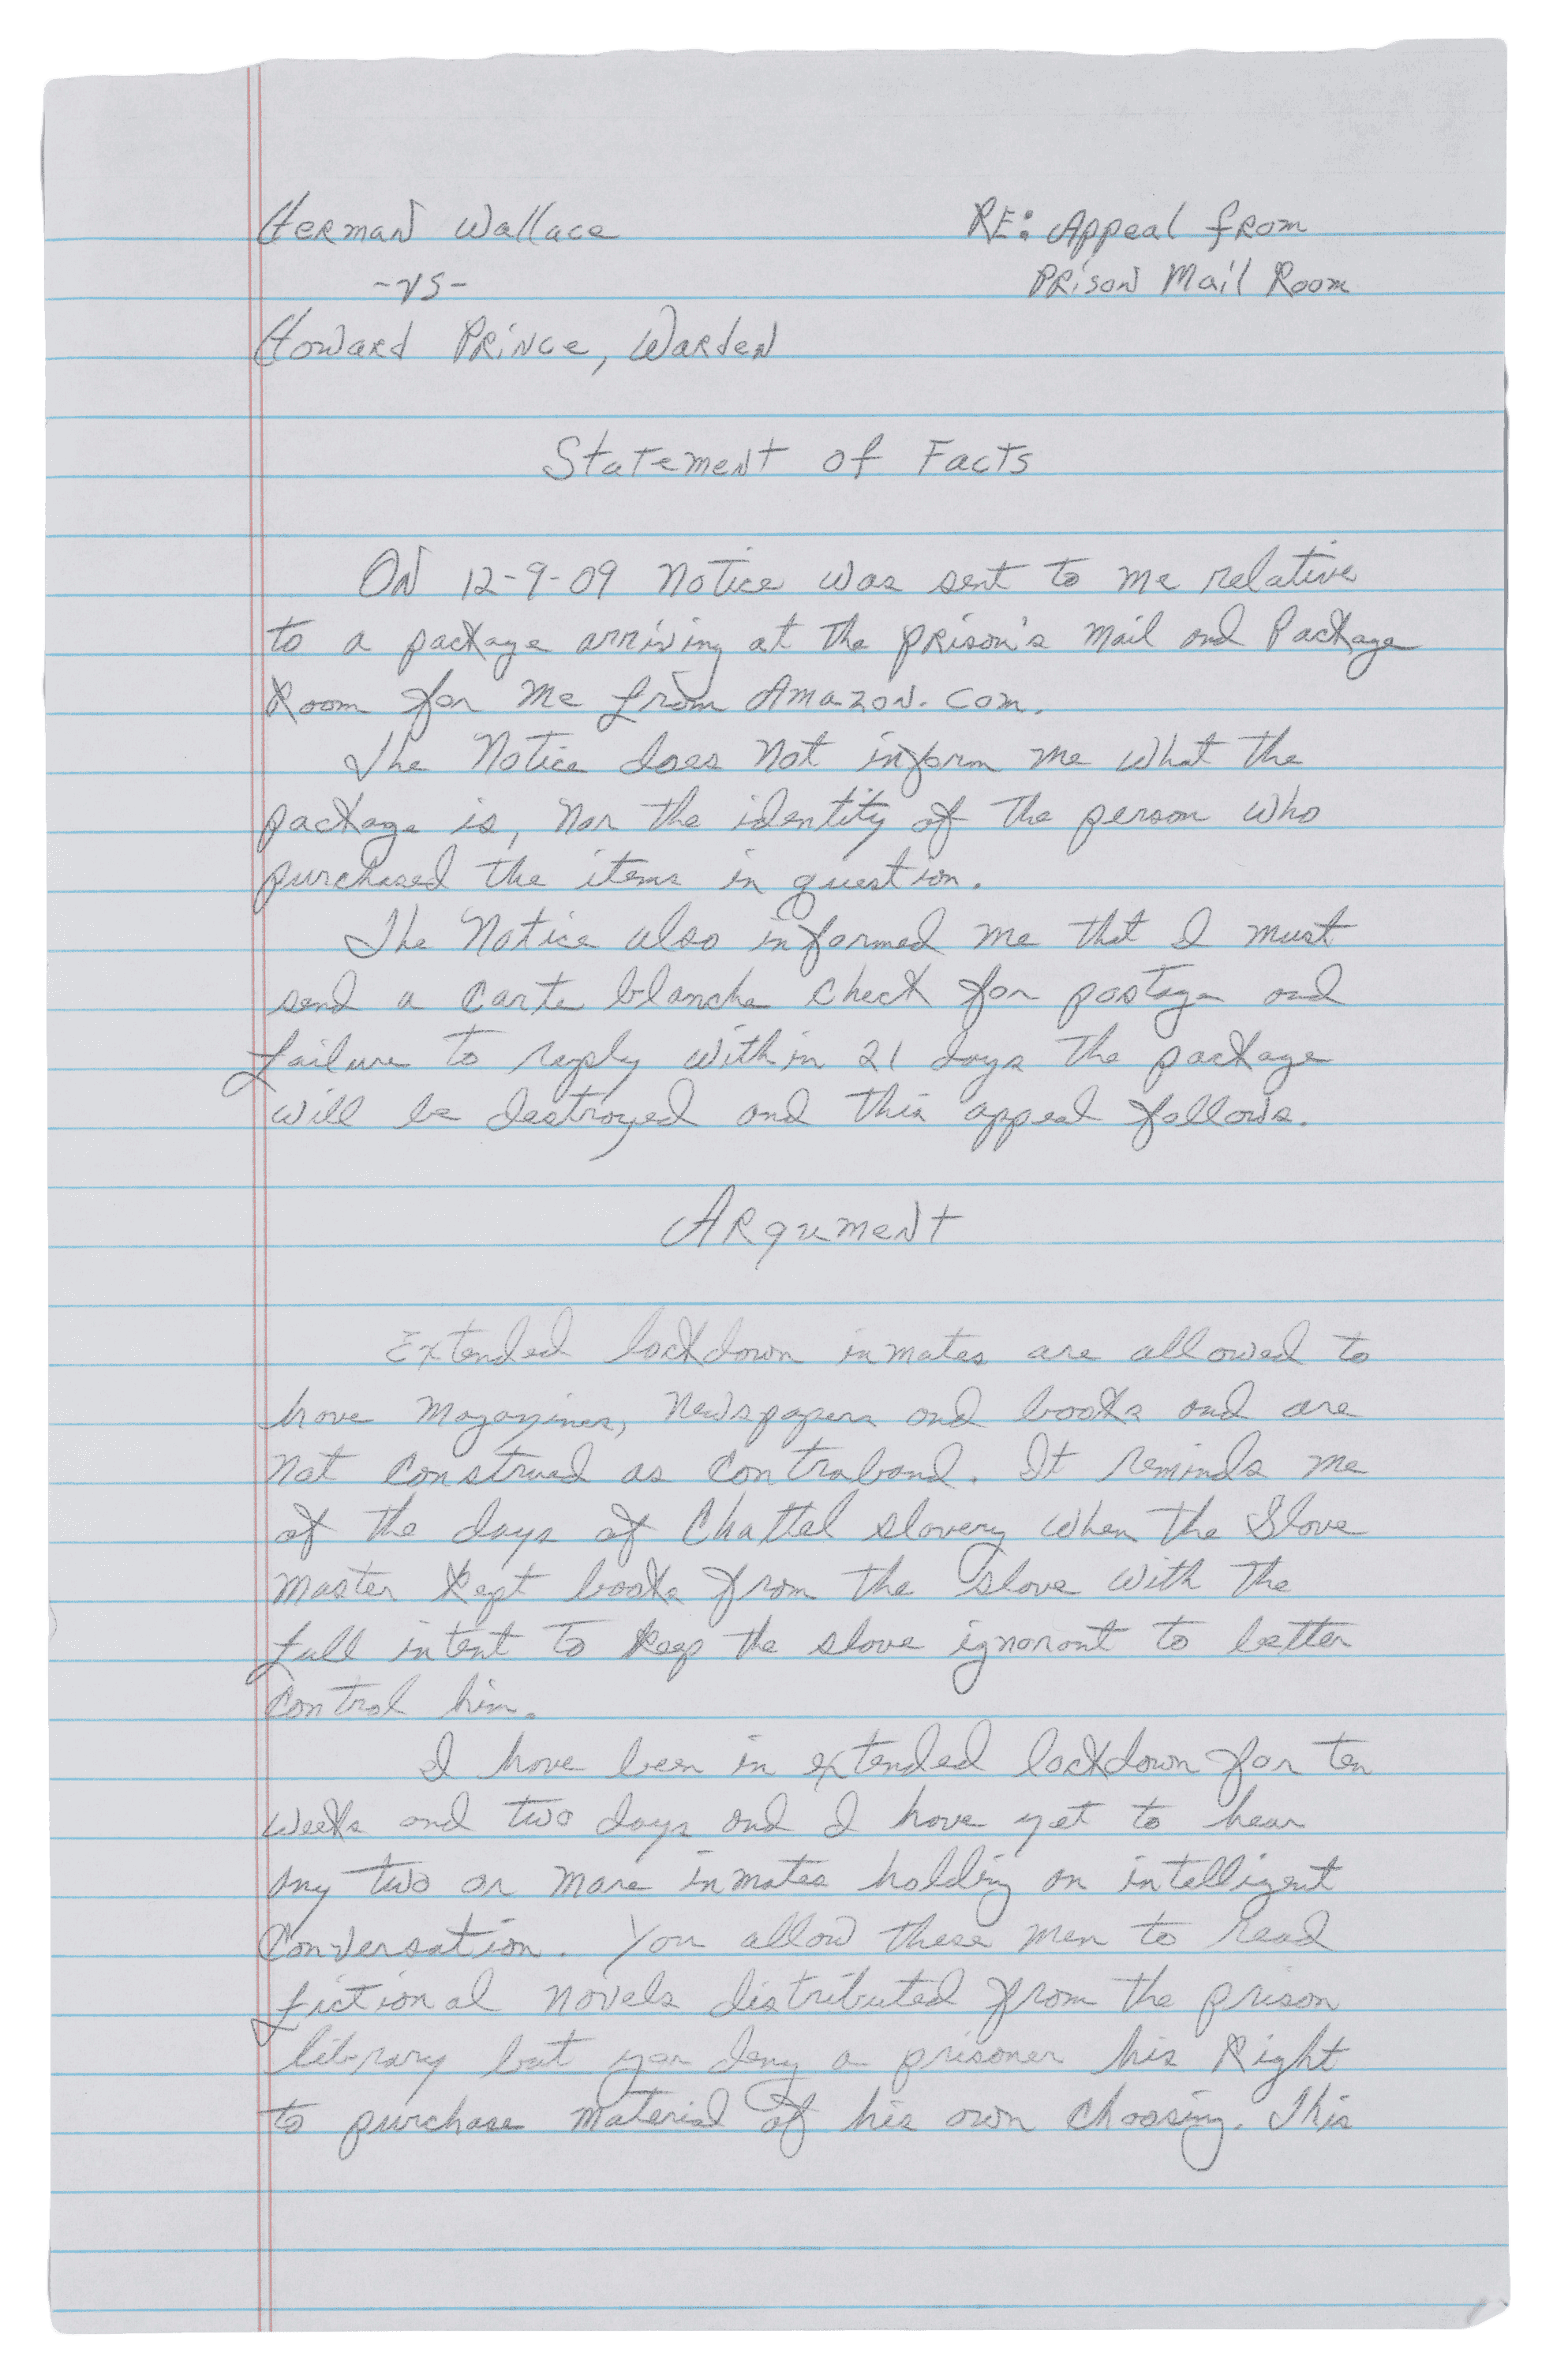 Herman Wallace RE: Appeal from
-vs- Prison Mail Room
Howard Prince, Warden
Statement of Facts
On 12-9-09 Notice was sent to me relative
to a package arriving at the prison's Mail and Package
Room for me from Amazon.com.
The Notice does not inform me what the
package is, nor the identity of the person who
purchased the items in question.
The Notice also informed me that I must
send a carte blanche check for postage and
failure to reply within 21 days the package
will be destroyed and this appeal follows.
Argument
Extended lockdown inmates are allowed to
have magazines, newspapers and books and are
not construed as contraband. It reminds me
of the days of Chattel slavery when the Slave
master kept books from the slave with the
full intent to keep the slave ignorant to better
control him.
I have been in extended lockdown for ten
weeks and two days and I have yet to hear
any two or more inmates holding an intelligent
conversation. You allow these men to read
fictional novels distributed from the prison
library but you deny a prisoner his Right
to purchase material of his own choosing. This